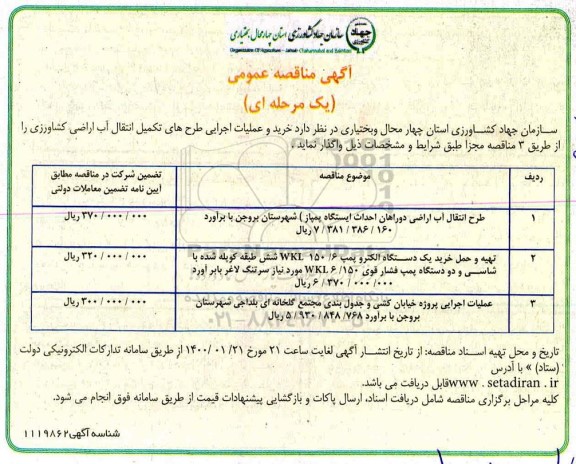 سازمان جهاد کشاورزی استان چهارمحال و بختیاری
Organization Of Agriculture - Jahade Chaharmahal and Bakhtiari
آگهی مناقصه عمومی
(یک مرحله ای)
سـازمان جهاد کشـاورزی استان چهار محال وبختیاری در نظر دارد خرید و عملیات اجرایی طرح های تکمیل انتقال آب اراضی کشاورزی را
از طریق ۳ مناقصه مجزا طبق شرایط و مشخصات ذیل واگذار نماید .
ردیف | موضوع مناقصه | تضمین شرکت در مناقصه مطابق آیین نامه تضمین معاملات دولتی
۱ | طرح انتقال آب اراضی دوراهان احداث ایستگاه پمپاژ ) شهرستان بروجن با برآورد ۱۶۰ / ۳۸۶ / ۳۸۱ / ۷ ریال | ۳۷۰ / ۰۰۰ / ۰۰۰ ریال
۲ | تهیه و حمل خرید یک دسـتگاه الکترو پمپ ۶/ ۱۵۰ WKL شش طبقه کوپله شده با شاسـی و دو دستگاه پمپ فشار قوی ۱۵۰/ ۶ WKL مورد نیاز سرتنگ لاغر بابر آورد ۰۰۰/ ۰۰۰ / ۳۷۰ / ۶ ریال | ۳۲۰ / ۰۰۰ / ۰۰۰ ریال
۳ | عملیات اجرایی پروژه خیابان کشی و جدول بندی مجتمع گلخانه ای بلداجی شهرستان بروجن با برآورد ۷۶۸/ ۸۴۸ / ۹۳۰ / ۵ ریال | ۳۰۰ / ۰۰۰ / ۰۰۰ ریال
تاریخ و محل تهیه اسـناد مناقصه: از تاریخ انتشـار آگهی لغایت ساعت ۲۱ مورخ ۲۱/ ۰۱ /۱۴۰۰ از طریق سامانه تدارکات الکترونیکی دولت
(ستاد) » با آدرس
www . setadiran . ir قابل دریافت می باشد.
کلیه مراحل برگزاری مناقصه شامل دریافت اسناد، ارسال پاکات و بازگشایی پیشنهادات قیمت از طریق سامانه فوق انجام می شود.
شناسه آگهی ۱۱۱۹۸۶۲